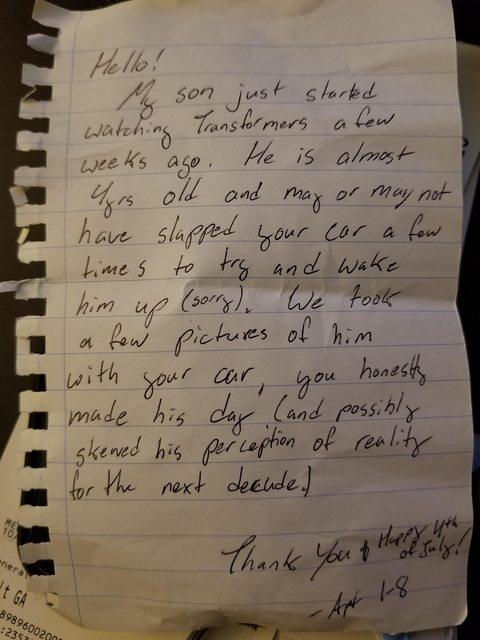 Hello!
My son just started
watching Transformers a few
weeks ago. He is almost
4yrs old and may or may not
have slapped your car a few
times to try and wake
him up (sorry). We took
a few pictures of him
with your car, you honestly
made his day (and possibly
skewed his perception of reality
for the next decade.)
Thank You & Happy 4th
of July!
- Apt 1-8
10/
lt GA